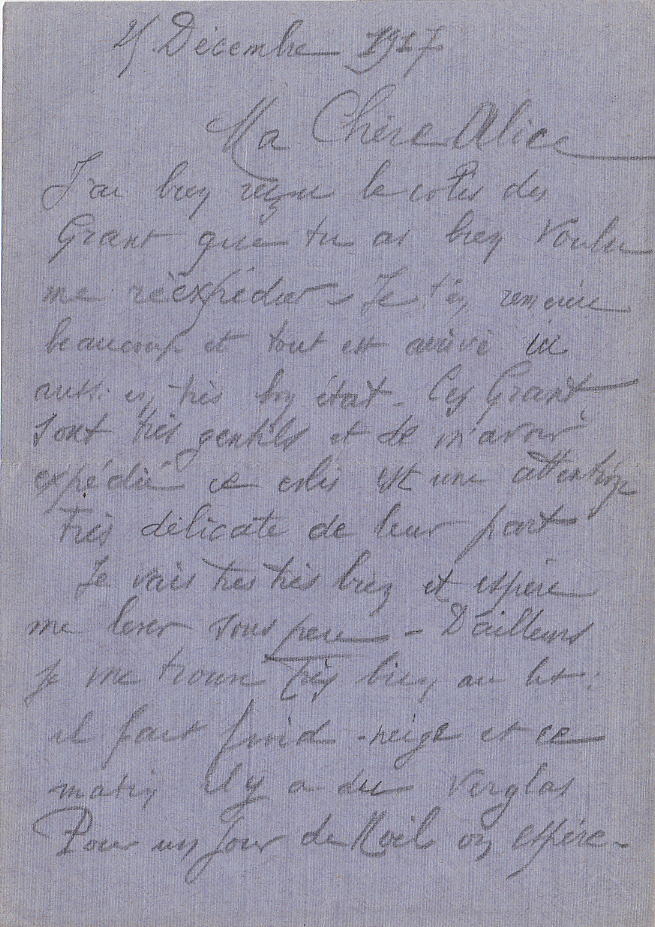 25 Décembre 1917
Ma Chère Alice
J'ai bien reçu le colis des
Grant que tu as bien voulu
me réexpédier - Je t'en remercie
beaucoup et tout est arrivé ici
aussi en très bon état - Ces Grant
sont très gentils et de m'avoir
expédié ce colis est une attention
très délicate de leur part
Je vais très très bien et espère
me lever sous peu - D'ailleurs
je me trouve très bien au lit :
il fait froid - neige et ce
matin il y a du verglas
Pour un jour de Noël on espère -